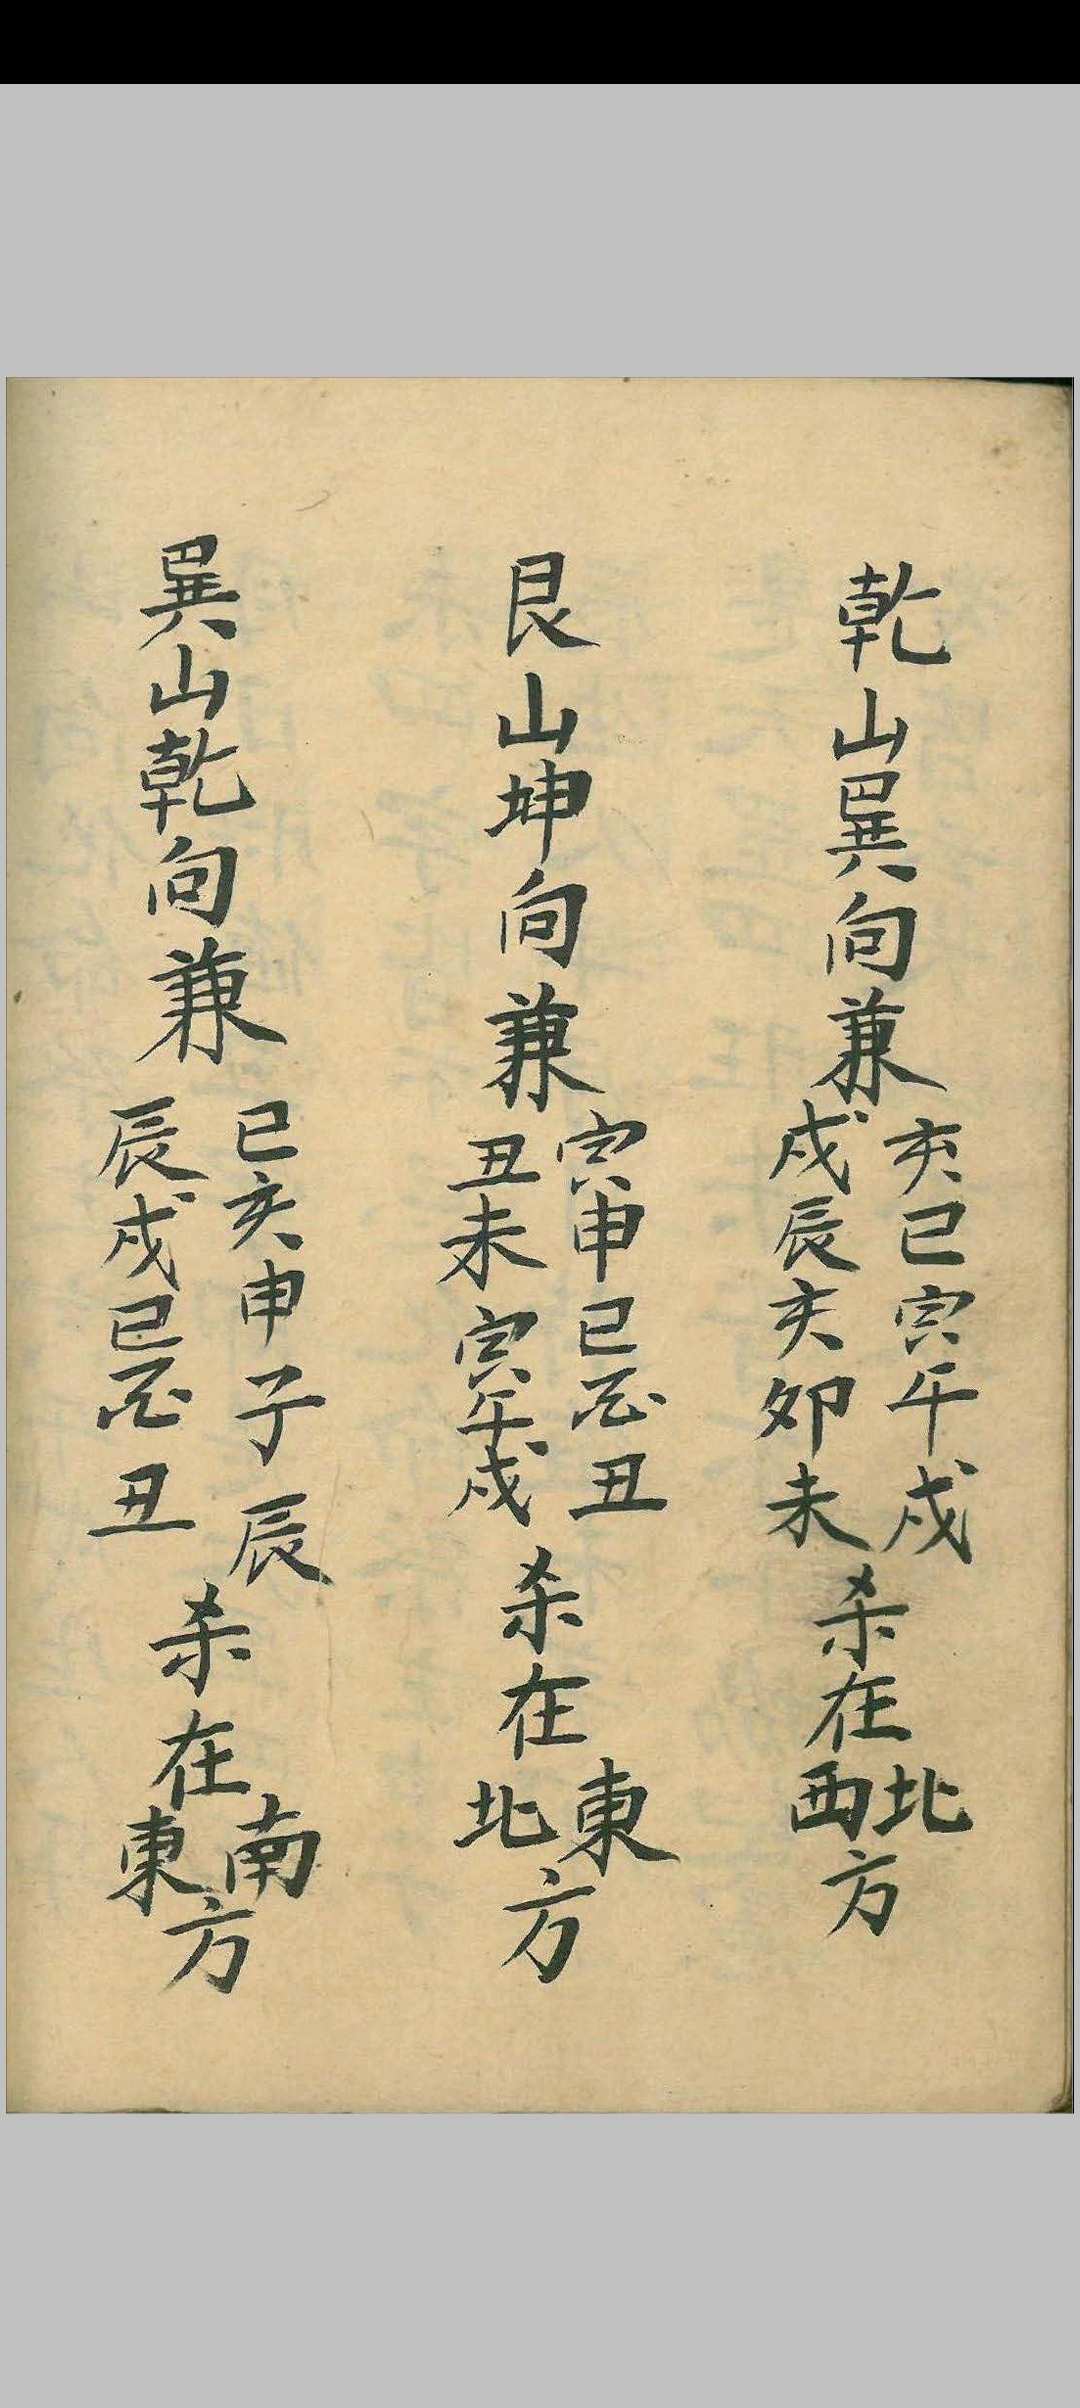 乾山巽向兼
亥巳寅午戌
戌辰亥卯未
杀在
北
西
方
艮山坤向兼
寅申巳酉丑
丑未寅午戌
杀在
東
北
方
巽山乾向兼
巳亥申子辰
辰戌巳酉丑
杀在
南
東
方